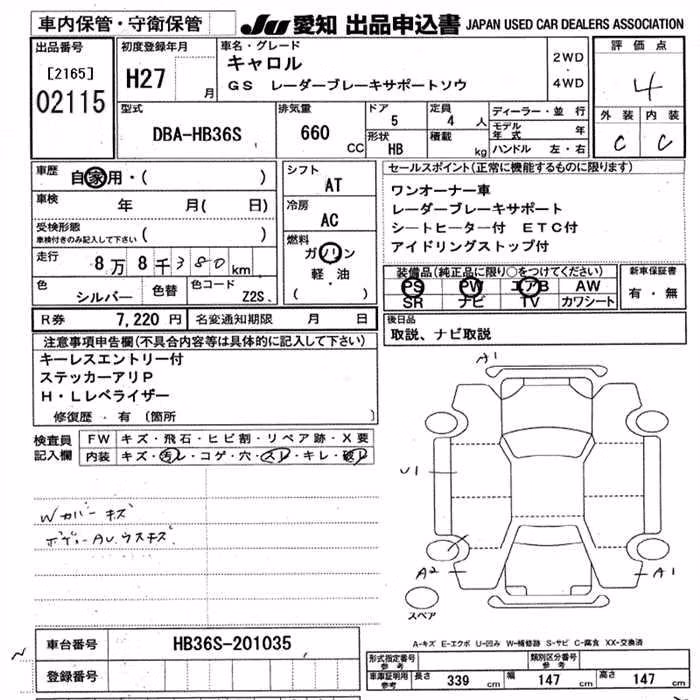 車内保管・守衛保管
JU 愛知 出品申込書 JAPAN USED CAR DEALERS ASSOCIATION
出品番号
[2165]
02115
初度登録年月
H27 月
車名・グレード
キャロル
GS レーダーブレーキサポートソウ
2WD
・
4WD
評価点
4
外装 内装
C C
型式
DBA-HB36S
排気量
660 CC
ドア
5
定員
4 人
形状
HB
積載
kg
ディーラー・並行
モデル年式 年
ハンドル 左・右
車歴
自家用・( )
車検 年 月( 日)
受検形態
車検付きのみ記入して下さい ( )
走行
8万8千380km
色
シルバー
色替
色コード
Z2S
シフト
AT
冷房
AC
燃料
ガソリン
軽・油
( )
セールスポイント(正常に機能するものに限ります)
ワンオーナー車
レーダーブレーキサポート
シートヒーター付 ETC付
アイドリングストップ付
装備品(純正品に限り○をつけてください)
PS PW エアB AW
SR ナビ TV カワシート
新車保証書
有・無
R券 7,220円 名変通知期限 月 日
後日品
取説、ナビ取説
注意事項申告欄(不具合内容等は具体的に記入して下さい)
キーレスエントリー付
ステッカーアリP
H・Lレベライザー
修復歴・有(箇所 )
検査員
記入欄
FW キズ・飛石・ヒビ割・リペア跡・X要
内装 キズ・汚レ・コゲ・穴・スレ・キレ・破レ
Wカバーキズ
ボディーAU.ウスキズ.
A1
U1
A2
A1
スペア
A-キズ E-エクボ U-凹み W-補修跡 S-サビ C-腐食 XX-交換済
車台番号 HB36S-201035
登録番号
形式指定番号
参考
類別区分番号
参考
車庫証明用
参考
長さ 339 cm 幅 147 cm 高さ 147 cm